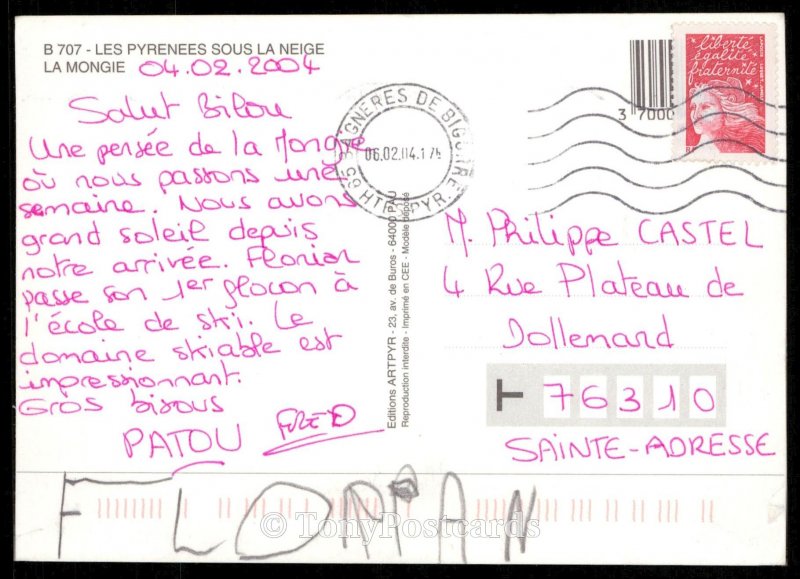 B 707 - LES PYRENEES SOUS LA NEIGE
LA MONGIE 04.02.2004
Salut Bilou
Une pensée de la Mongie
où nous passons une
semaine. Nous avons
grand soleil depuis
notre arrivée. Florian
passe son 1er flocon à
l'école de ski. Le
domaine skiable est
impressionnant.
Gros bisous
PATOU FRED
FLORIAN
BAGNERES DE BIGORRE
06.02.04.17
65 HTES PYR.
Editions ARTPYR - 23, av. de Buros - 64000 PAU
Reproduction interdite - Imprimé en CEE - Modèle déposé
liberté
égalité
fraternité
3 7000
M. Philippe CASTEL
4 Rue Plateau de
Dollemard
76310
SAINTE-ADRESSE
© TonyPostcards